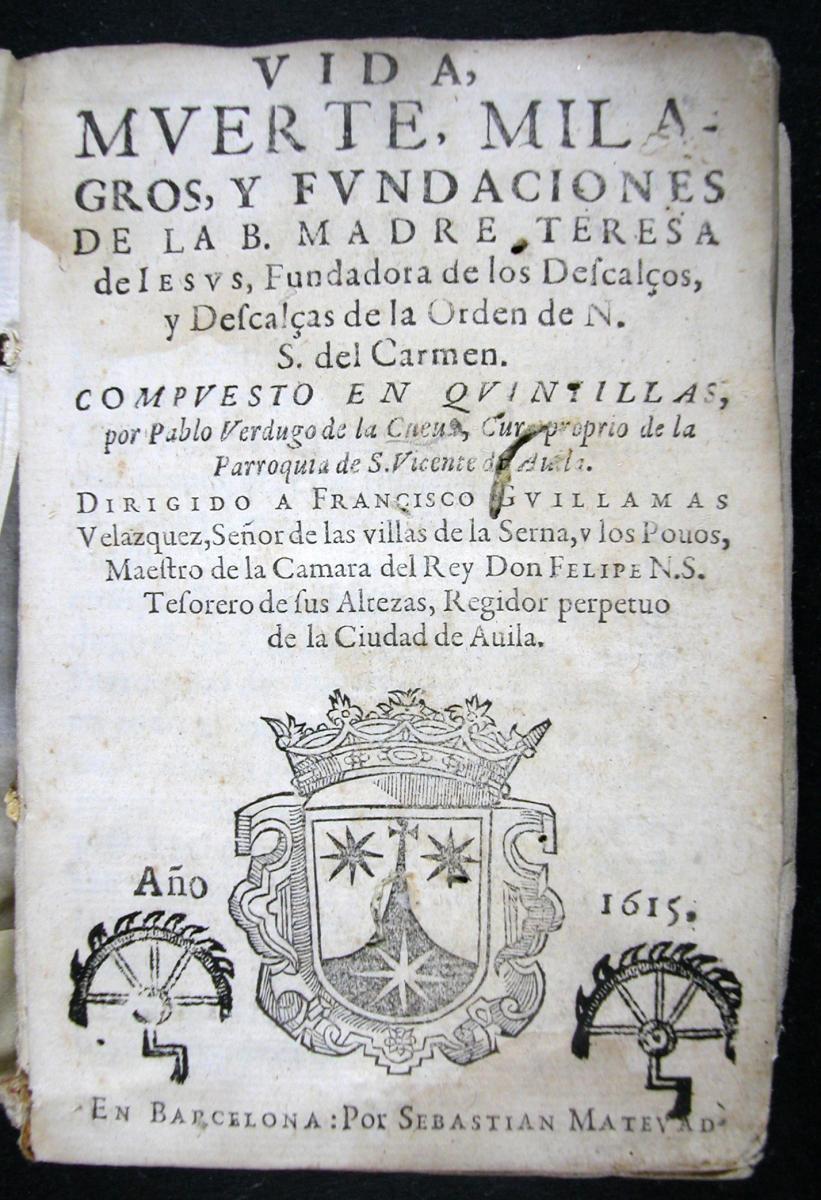 VIDA,
MVERTE, MILA-
GROS, Y FVNDACIONES
DE LA B. MADRE TERESA
de IESVS, Fundadora de los Deſcalços,
y Deſcalças de la Orden de N.
S. del Carmen.
COMPVESTO EN QVINTILLAS,
por Pablo Verdugo de la Cueua, Cura proprio de la
Parroquia de S. Vicente de Auila.
DIRIGIDO A FRANCISCO GVILLAMAS
Velazquez, Señor de las villas de la Serna, y los Pouos,
Maeſtro de la Camara del Rey Don FELIPE N.S.
Teſorero de ſus Altezas, Regidor perpetuo
de la Ciudad de Auila.
Año 1615.
EN BARCELONA: Por SEBASTIAN MATEVAD